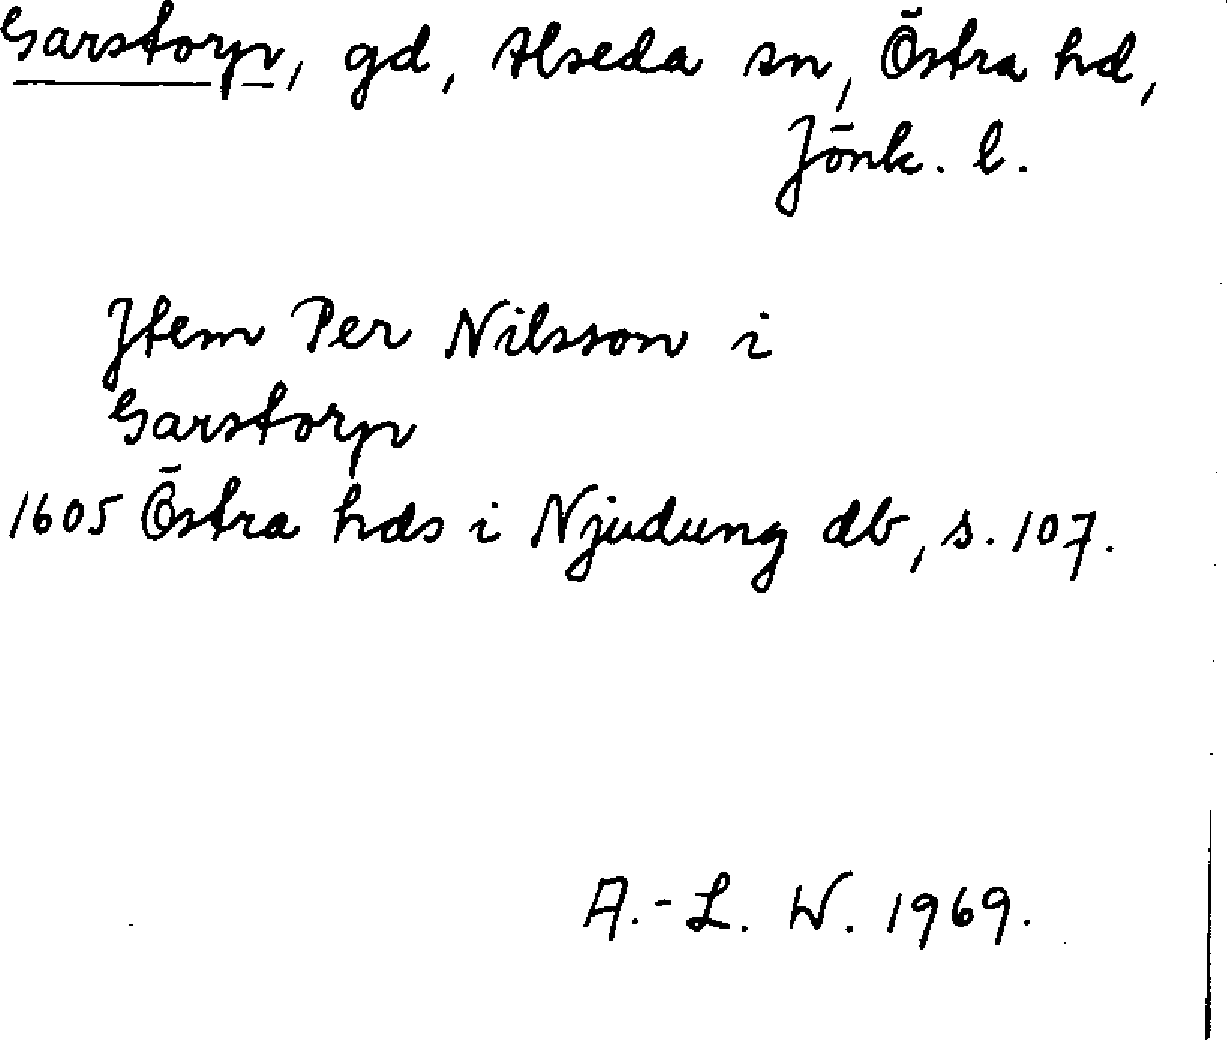 Garstorp, gd, Alseda sn, Östra hd,
Jönk. l.
Jtem Per Nilsson i
Garstorp
1605 Östra hds i Njudung db, s. 107.
A.-L. W. 1969.